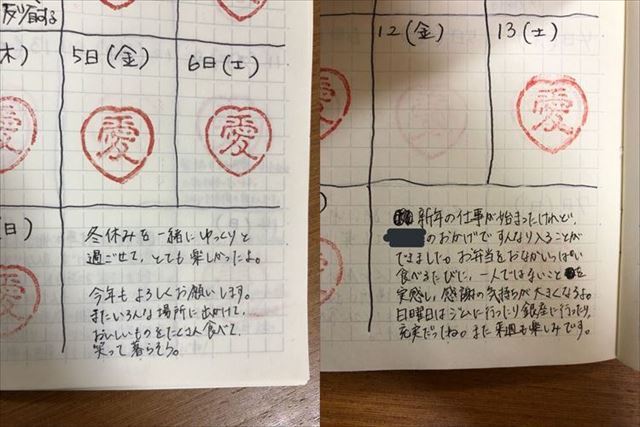 反省する
木)
5日(金)
6日(土)
愛
愛
日)
冬休みを一緒にゆっくりと
過ごせて、とても楽しかったよ。
今年もよろしくお願いします。
またいろんな場所に出かけて、
おいしいものをたくさん食べて、
笑って暮らそう。
12(金)
13(土)
愛
新年の仕事が始まったけれど、
のおかげですんなり入ることが
できました。お弁当をおなかいっぱい
食べるたびに、一人ではないことを
実感し、感謝の気持ちが大きくなるよ。
日曜日はジムに行ったり銀座に行ったり、
充実だったね。また来週も楽しみです。